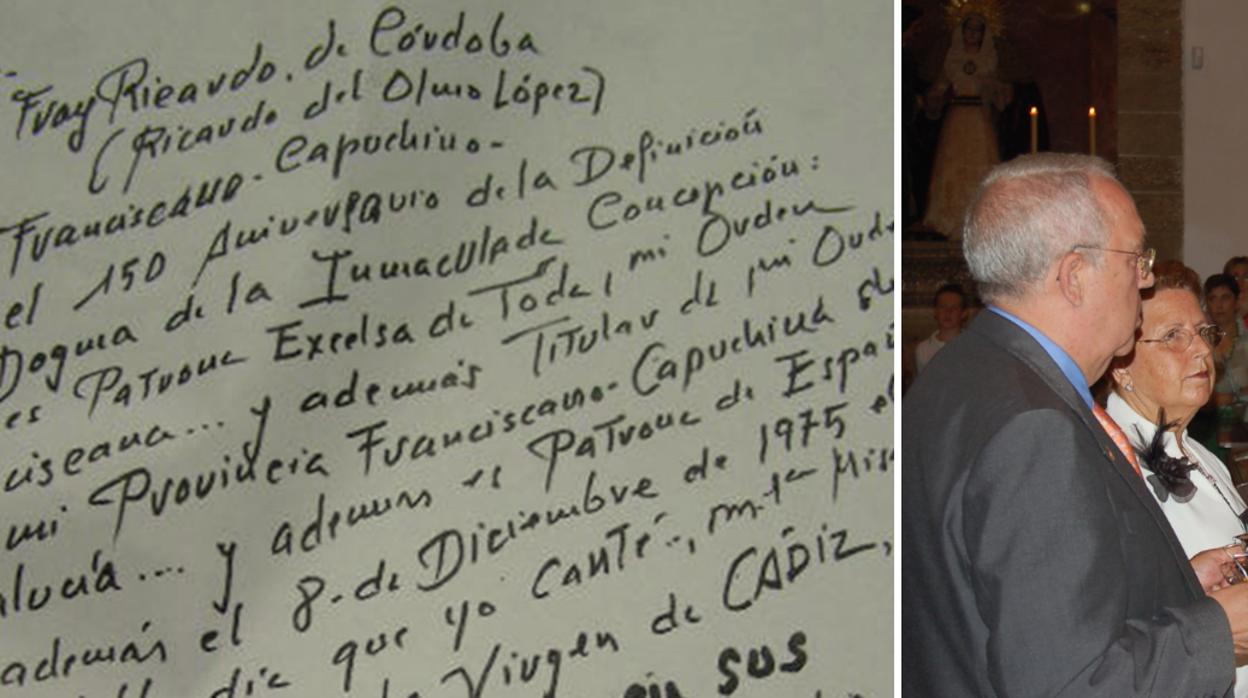 Fray Ricardo. de Córdoba
(Ricardo del Olmo López)
Franciscano-Capuchino-
el 150 Aniversario de la Definición
Dogma de la Inmaculada Concepción:
es Patrona Excelsa de Toda, mi Orden
ciscana... y además Titular de mi Orde
mi Provincia Franciscano-Capuchina de
alucía... y además es Patrona de Españ
además el 8-de Diciembre de 1975 el
dia que yo Canté.., mi 1ª Mis
Virgen de CÁDIZ,
en sus